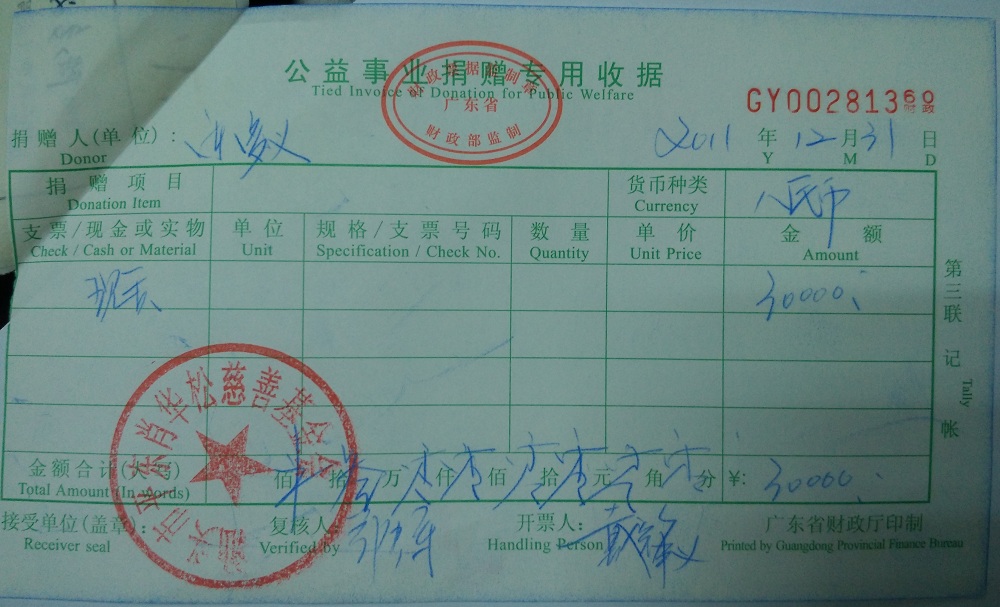 公益事业捐赠专用收据
Tied Invoice of Donation for Public Welfare
广东省
财政部监制
GY00281369
财政
捐赠人(单位):
Donor
2011 年 12 月 31 日
Y M D
捐赠项目 货币种类 人民币
Donation Item Currency
支票/现金或实物 单位 规格/支票号码 数量 单价 金额
Check / Cash or Material Unit Specification / Check No. Quantity Unit Price Amount
现金 30000.
第三联 记 帐
Tally
金额合计(大写) 佰 拾 万 仟 佰 拾 元 角 分 ¥: 30000.
Total Amount (In words)
接受单位(盖章): 复核人 开票人: 广东省财政厅印制
Receiver seal Verified by Handling Person Printed by Guangdong Provincial Finance Bureau
肖华松慈善基金会